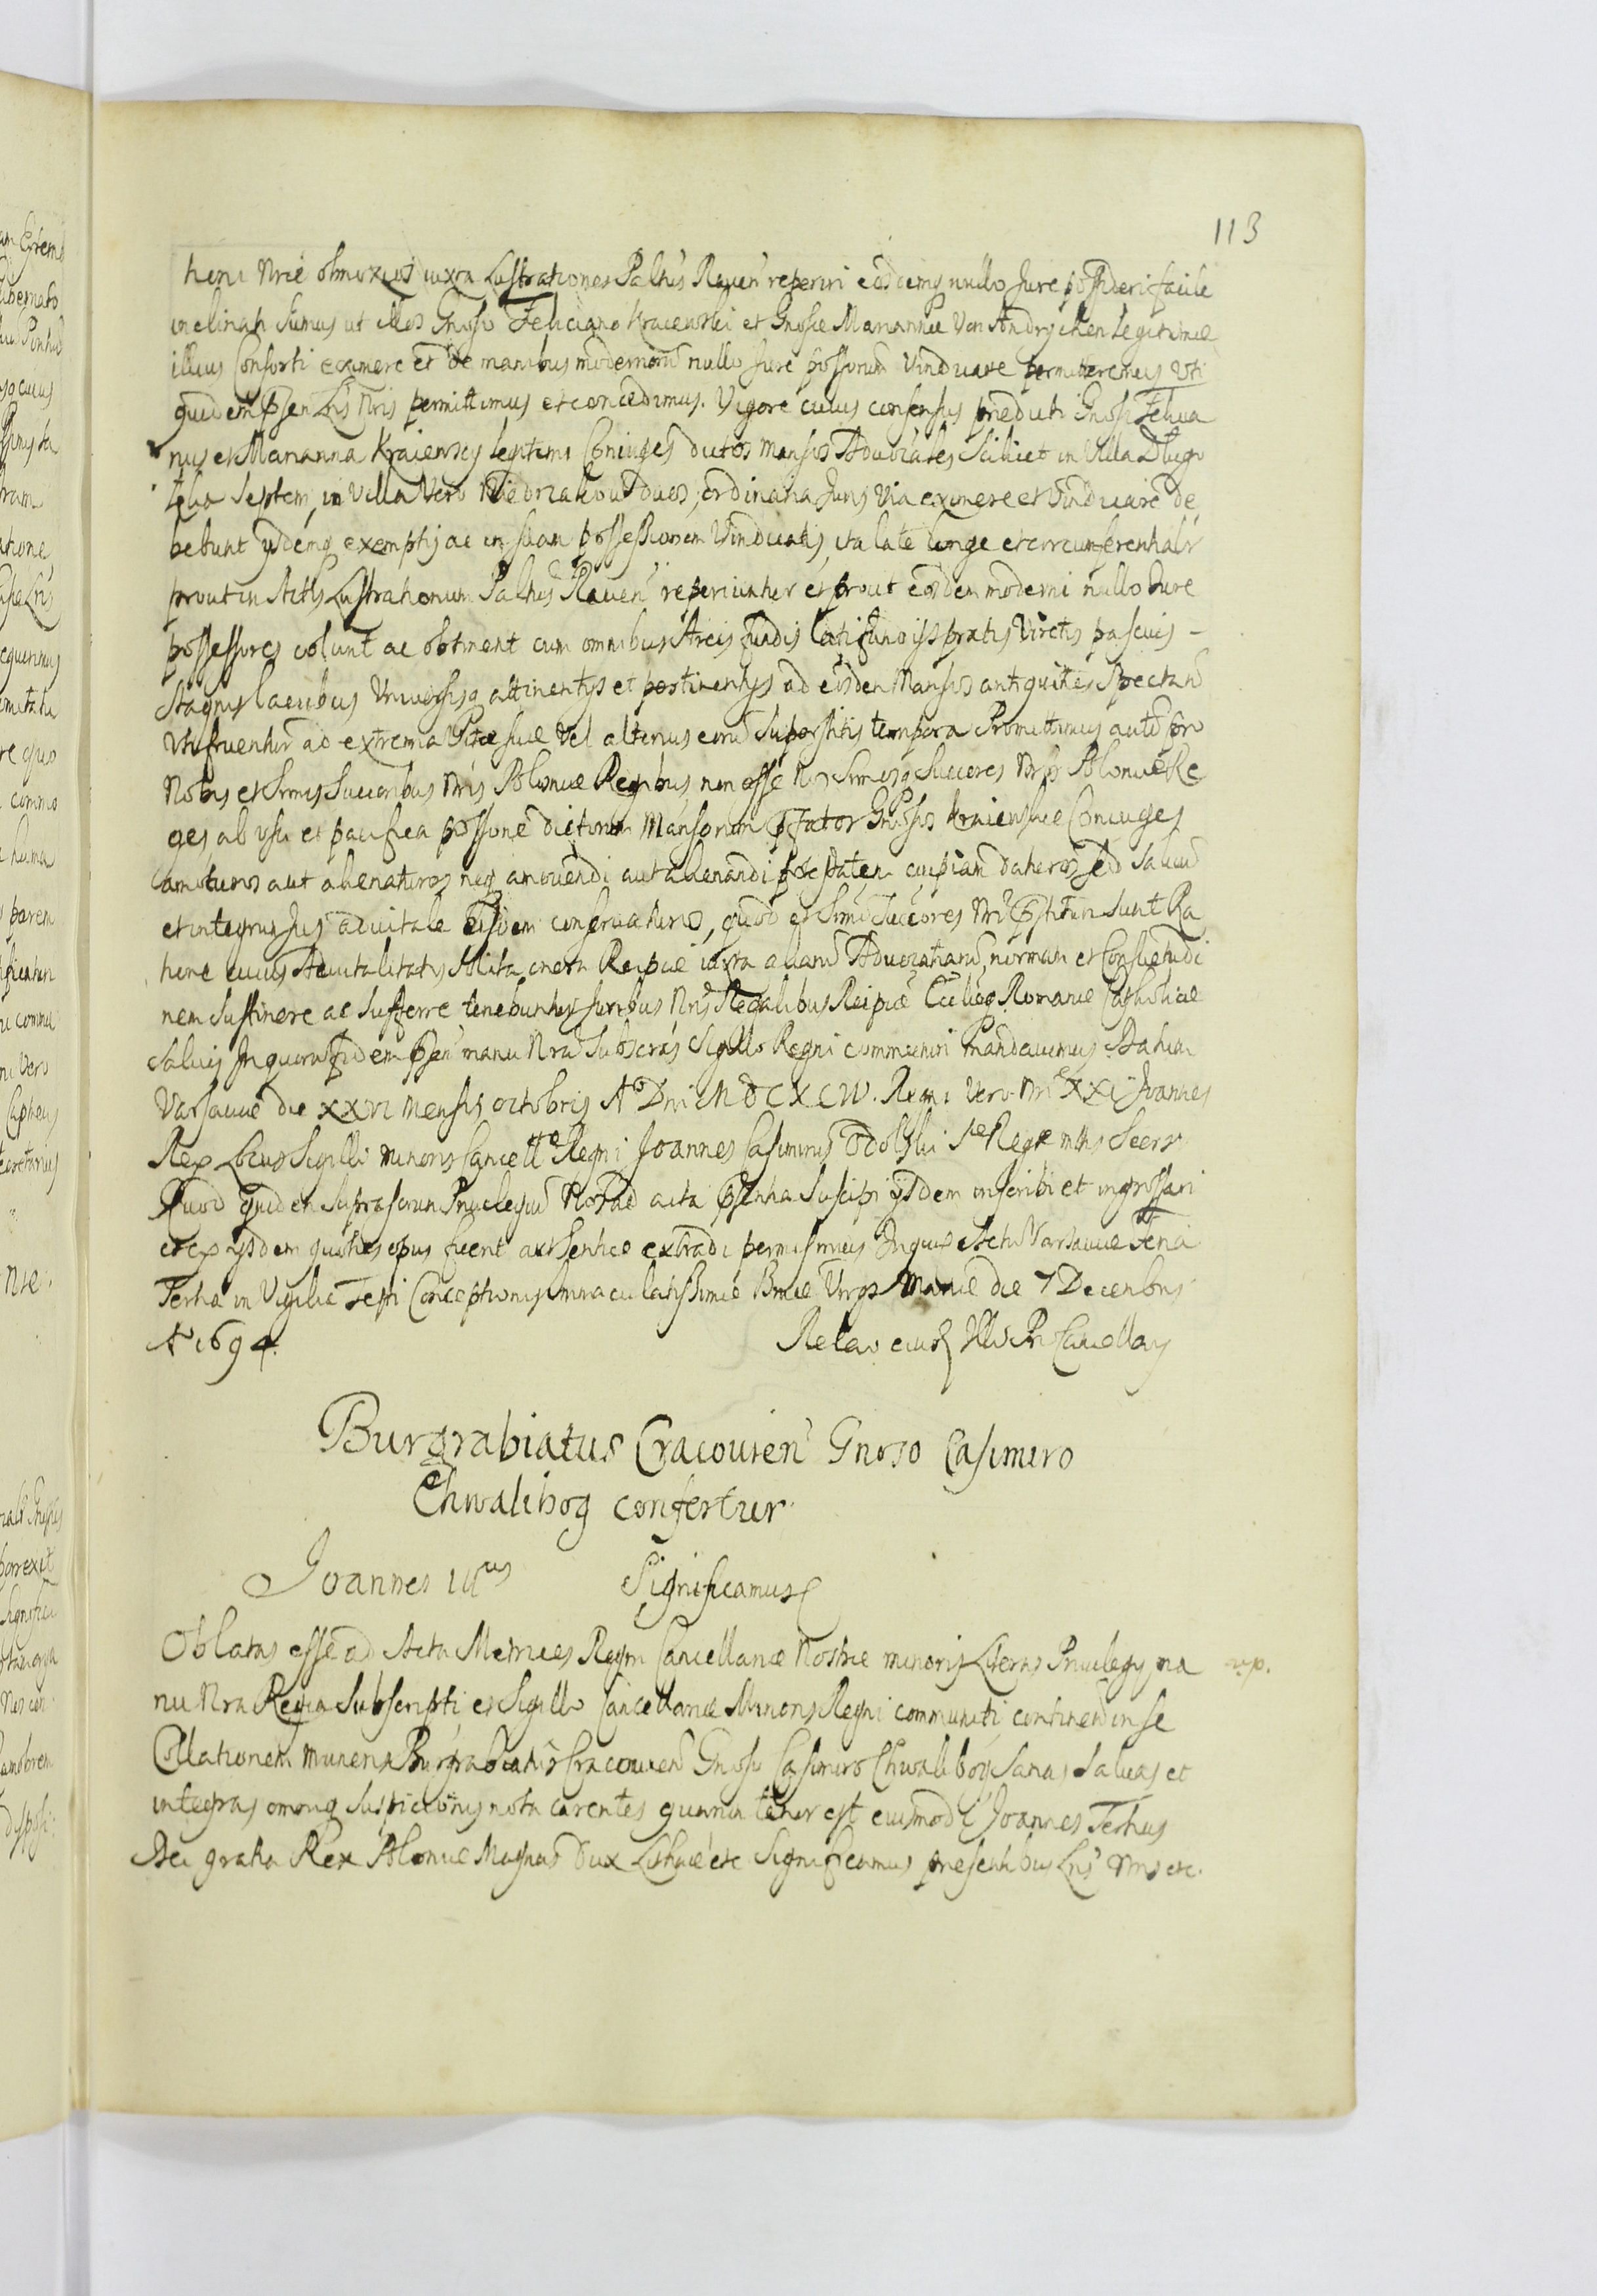 113
hens Nrae obnoxios iuxta Lustrationes Paltus Raven reperiri eosdemq nullo Jure possideri facile
inclinati sumus ut illos Gnoso Feliciano Kraiewski et Gnosae Mariannae Von Andrychen Legitimae
illius Consorti eximere et de manibus modernorum nullo Jure possorum Vindicare permitteremus Uti
quidem psen Lris Nris permittimus et concedimus. Vigore cuius consensus praedicti Gnosi Felicia
nus et Marianna Kraiewscy legitimi Coniuges dictos Mansos Advocales scilicet in Villa Dlugo
leka septem, in Villa Vero duos, ordinaria Juris Via eximere et Vindicare de
bebunt ysdemq exemptis ac in suam possessionem Vindicatis, ita late longe et circumferentialr
prout in Actis Lustrationum Paltus Raven reperiuntur et prout eosdem moderni nullo Jure
possessores colunt ac obtinent cum omnibus Areis fundis latifundiis pratis Viretis pascuis -
stagnis lacubus Universisq attinentys et pertinentys ad eosdem Mansos antiquites spectand
Utifruentur ad extrema Vitae suae Vel alterius eoru superstitis tempora Promittimus aute pro
Nobis et Srmis Succoribus Nris Poloniae Regibus, non esse Nos Srmosq Succores Nros Poloniae Re
ges, ab usu et pacifica possione dictorum Mansorum pfator Gnosos Kraiewskie Coniuges
amoturos aut alienaturos neq amovendi aut alienandi potestatem cuipiam daturos, sed salvu
et integrum Jus advitale eisdem conservaturos, quod et Srmi Succores Nri pstituri sunt Ra
tione cuius Advitalitatis solita onera Reipcae iuxta aliaru Advocatiaru, normam et Consuetudi
nem sustinere ac sufferre tenebuntur Juribus Nris Regalibus Reipcae Eccliaeq Romanae Catholicae
salvis In quoru fidem psen manu Nra subscras Sigillo Regni communiri Mandavimus Datum
Varsaviae die XXVI Mensis Octobris Ao Dni MDCXCIV. Regni Vero Nri XXI Joannes
Rex Locus Sigilli minoris Cancell Regni Joannes Casimirus Sae Regiae mtis Secrr
Quod quidem suprascrum Privilegiu Nos ad acta psentia suscipi ysdem inscribi et ingrossari
et ex ysdem quoties opus fuerit authentice extradi permisimus In quo Actu Varsaviae Feria
Tertia in Vigilia Festi Conceptionis immaculatissimae Bmae Virgs Mariae die 7 Decembris
Ao 1694. Relao eiusd Cancellary
Burgrabiatus Cracovien Gnoso Casimiro
Chwalibog confertur
Joannes IIIus Significamus
Oblatas esse ad Acta Metrices Regni Cancellariae Nostrae minoris Literas Privilegy ma
nu Nra Regia subscripti et Sigillo Cancellariae Minoris Regni communiti continen in se
Collationem muneris Burgrabiatus Cracovien Gnoso Casimiro Chwalibog Sanas salvas et
integras omniq suspicionis nota carentes quarum tenor est eiusmodi Joannes Tertius
Dei gratia Rex Poloniae Magnus Dux Lithuae etc Significamus praesentibus Lris Nris etc.